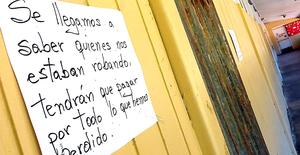 Se llegamos a
saber quienes nos
estaban robando.
tendrán que pagar
por todo lo que hemos
perdido.